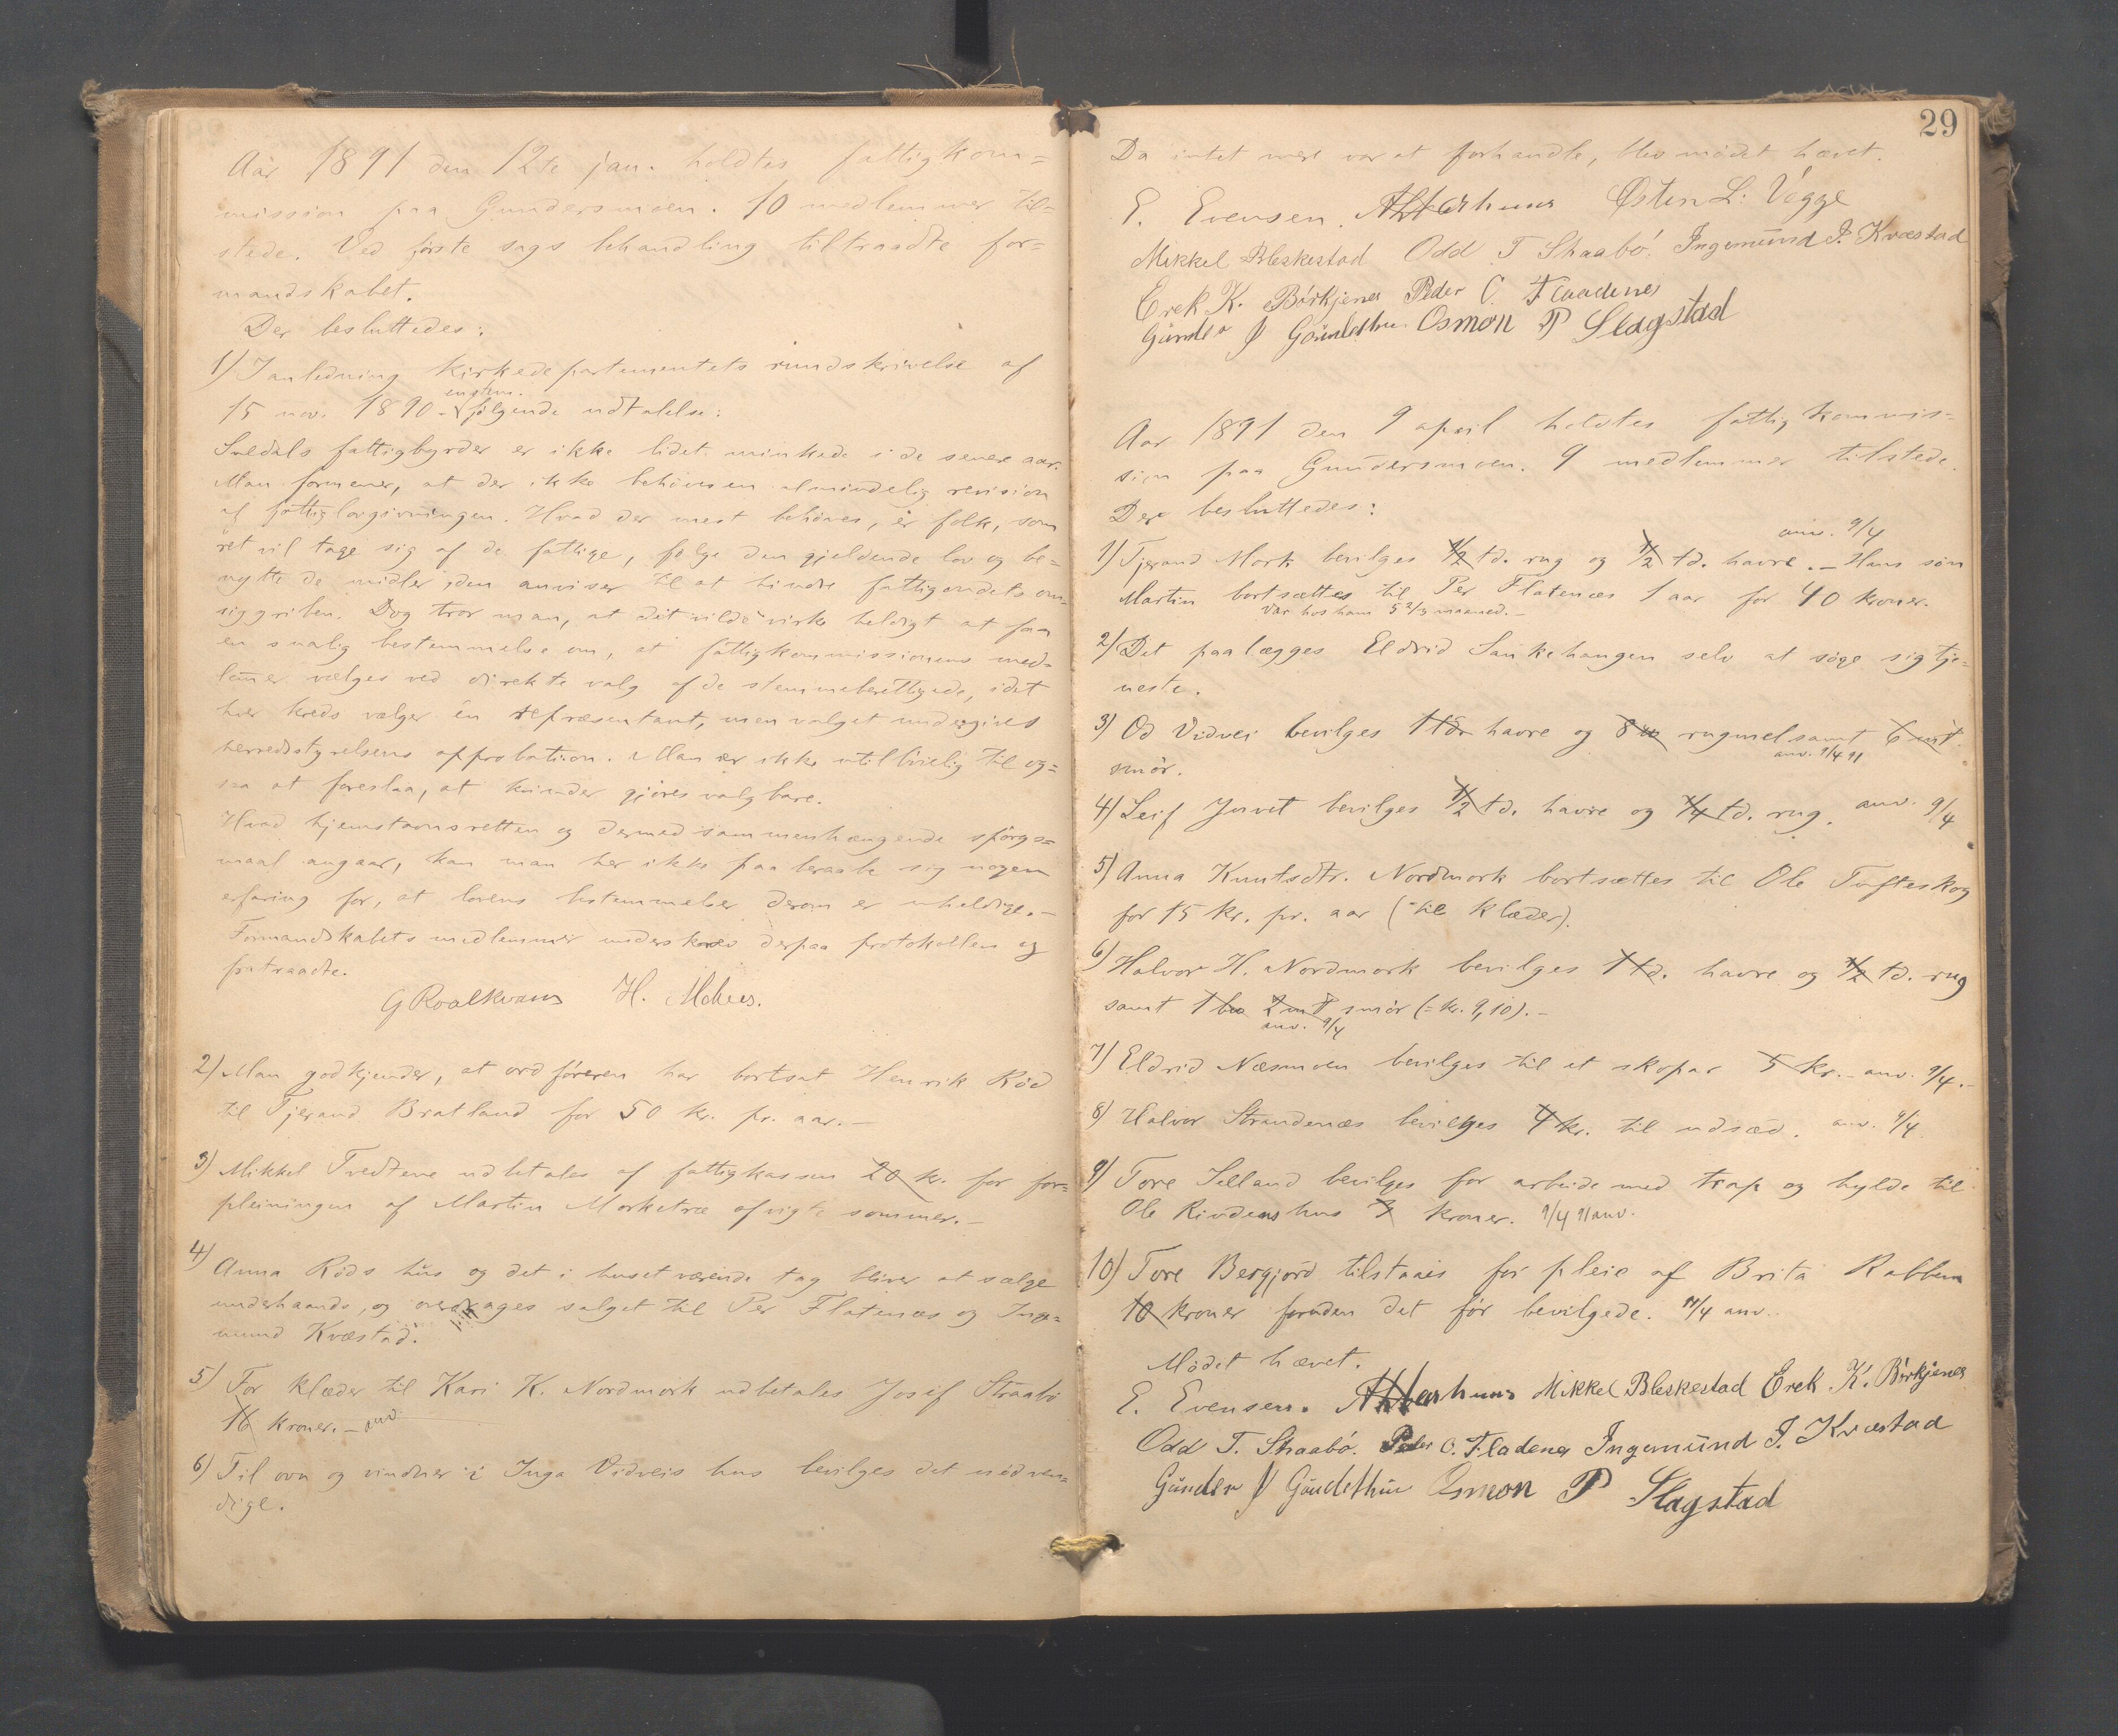 Aar 1891 den 12te jan. holdtes fattigkom=
mission paa Gundersmoen. 10 medlemmer til=
stede. Ved første sags behandling tiltraadte for=
mandskabet.
Der besluttedes:
1) I anledning kirkedepartementets rundskrivelse af
enstem.
15 nov. 1890 - følgende udtalelse:
Suldals fattigbyrder er ikke lidet minkede i de senere aar.
Man formener, at der ikke behøves en almindelig revision
af fattiglovgivningen. Hvad der mest behøves, er folk, som
ret vil tage sig af de fattige, følge den gjeldende lov og be=
nytte de midler, den anviser til at hindre fattigondets om=
siggriben. Dog tror man, at det vilde virke heldigt at faa
en saalig bestemmelse om, at fattigkommissionens med=
lemmer vælges ved direkte valg af de stemmeberettigede, idet
hver kreds vælger én repræsentant, men valget undergives
herredsstyrelsens approbation. Man er ikke utilbøielig til og=
saa at foreslaa, at kvinder gjøres valgbare.
Hvad hjemstavnsretten og dermed sammenhængende spørgs=
maal angaar, kan man her ikke paaberaabe sig nogen
erfaring for, at lovens bestemmelser derom er uheldige. -
Formandskabets medlemmer underskrev derpaa protokollen og
fratraadte.
G Roalkvam H. Mehus.
2) Man godkjender, at ordføreren har bortsat Henrik Röd
til Tjerand Bratland for 50 kr. pr. aar. -
3) Mikkel Tvedtene udbetales af fattigkassen 20 kr. for for=
pleiningen af Martin Morketræ afvigte sommer. -
4) Anna Röds hus og det i huset værende tag bliver at sælge
underhaands, og overdrages salget til Per Flatenæs og Inge=
mund Kvæstad.
5) For klæder til Kari K. Nordmork udbetales Josef Straabö
16 kroner. - anv.
6) Til ovn og vinduer i Inga Vidveis hus bevilges det nödven=
dige.
29
Da intet mere var at forhandle, blev mødet hævet.
E. Evensen. Østen L. Vegge
Mikkel Bleskestad Odd T Straabö. Ingemund I. Kvæstad
Erek K. Börkjenes Peder O. Fladenes
Gunder J Gaudethun. Osmon P Slagstad
Aar 1891 den 9 april holdtes fattigkommis=
sion paa Gundersmoen. 9 medlemmer tilstede.
Der besluttedes:
anv. 9/4
1) Tjerand Mork bevilges 1/2 td. rug og 1/2 td. havre. - Hans sön
Martin bortsættes til Per Flatenæs 1 aar for 40 kroner.
var hos ham 5 2/3 maaned. -
2) Det paalægges Eldrid Sankehaugen selv at söge sig tje=
neste.
3) Od Vidvei bevilges 1 td. havre og 8 rugmel samt 6
anv. 9/4 91
smör.
4) Leif Juvet bevilges 1/2 td. havre og 1/4 td. rug. anv. 9/4
5) Anna Knutsdtr. Nordmork bortsættes til Ole Tufteskog
for 15 kr. pr. aar (til klæder).
6) Halvor H. Nordmork bevilges 1 td. havre og 1/2 td. rug
samt 1 2 smör (= kr. 9,10). -
anv. 9/4
7) Eldrid Næsmoen bevilges til et skopar 5 kr. - anv. 9/4. -
8) Halvor Strandenæs bevilges 4 kr. til udsæd. anv. 9/4
9) Tore Selland bevilges for arbeide med trap og hylde til
Ole Rindens hus 3 kroner. 9/4 91 anv.
10) Tore Bergjord tilstaaes for pleie af Brita Rabben
10 kroner foruden det för bevilgede. anv.
Mödet hævet.
E. Evensen. Mikkel Bleskestad Erek K. Börkjenes
Odd T. Straabö. Peder O. Fladenes Ingemund I. Kvæstad
Gunder J Gaudethun Osmon P Slagstad